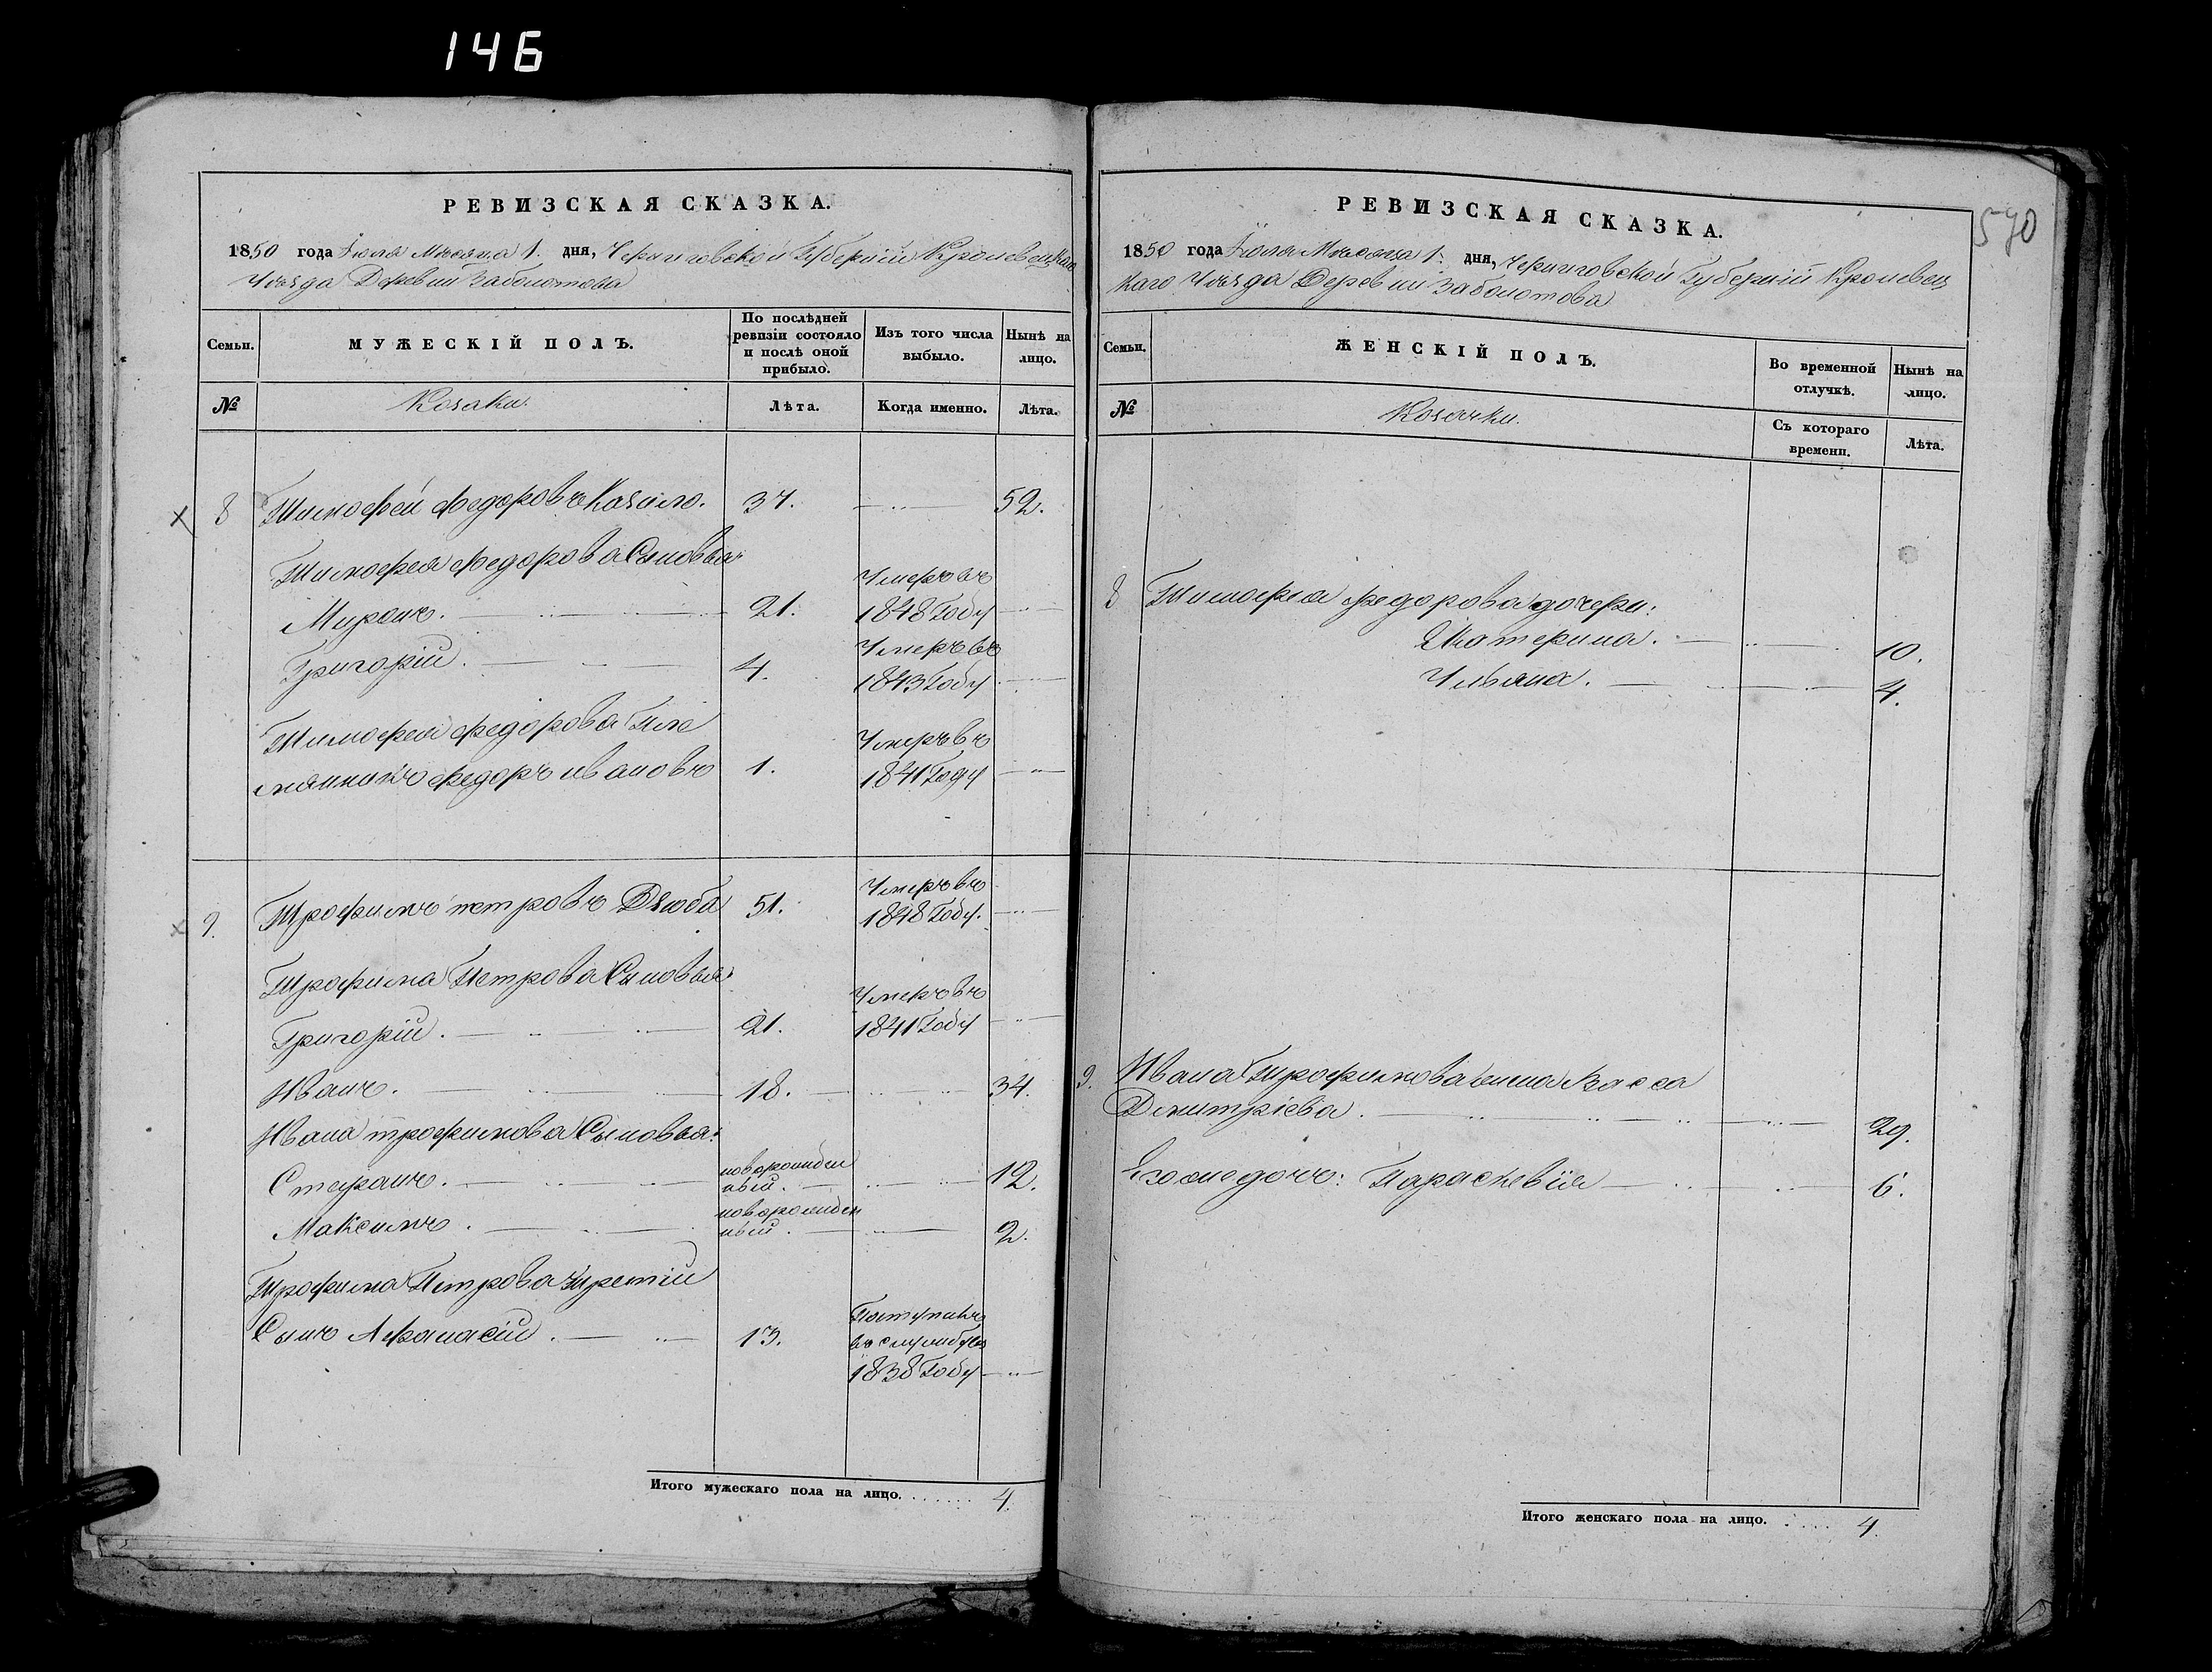 146
РЕВИЗСКАЯ СКАЗКА.
1850 года Іюля Мѣсяца 1. дня, Черниговской Губерніи Кролевецкаго
Уѣзда Деревни Заболотова
Семьи.
МУЖЕСКІЙ ПОЛЪ.
По послѣдней
ревизіи состояло
и послѣ оной
прибыло.
Изъ того числа
выбыло.
Нынѣ на
лицо.
№
Козаки.
Лѣта.
Когда именно.
Лѣта.
8 Тимофей Федоровъ 37. 52.
Тимофея Федорова Сыновья:
Умеръ въ
Миронъ. 21. 1848 Году
Умеръ въ
Григорій. 4. 1843 Году
Тимофея Федорова Пле
Умеръ въ
мянникъ Федоръ Ивановъ 1. 1841 Году
Умеръ въ
9. Трофимъ Петровъ Дзюба 51. 1848 Году.
Трофима Петрова Сыновья:
Умеръ въ
Григорій. 21. 1841 Году
Иванъ. 18. 34.
Ивана Трофимова Сыновья:
новорожден
Стефанъ. ный. 12.
новорожден
Максимъ. ный. 2.
Трофима Петрова третій
Сынъ Афанасій. 13.
Поступилъ
въ службу въ
1838 Году
Итого мужескаго пола на лицо. 4.
570
РЕВИЗСКАЯ СКАЗКА.
1850 года Іюля Мѣсяца 1. дня, Черниговской Губерніи Кролевец
каго Уѣзда Деревни Заболотова
Семьи.
ЖЕНСКІЙ ПОЛЪ.
Во временной
отлучкѣ.
Нынѣ на
лицо.
№
Козачки.
Съ котораго
времени.
Лѣта.
8 Тимофея Федорова дочери:
Екатерина. 10.
Ульяна. 4.
9. Ивана Трофимова жена Васса
Дмитріева. 29.
Его же дочь: Параскевія 6.
Итого женскаго пола на лицо. 4.